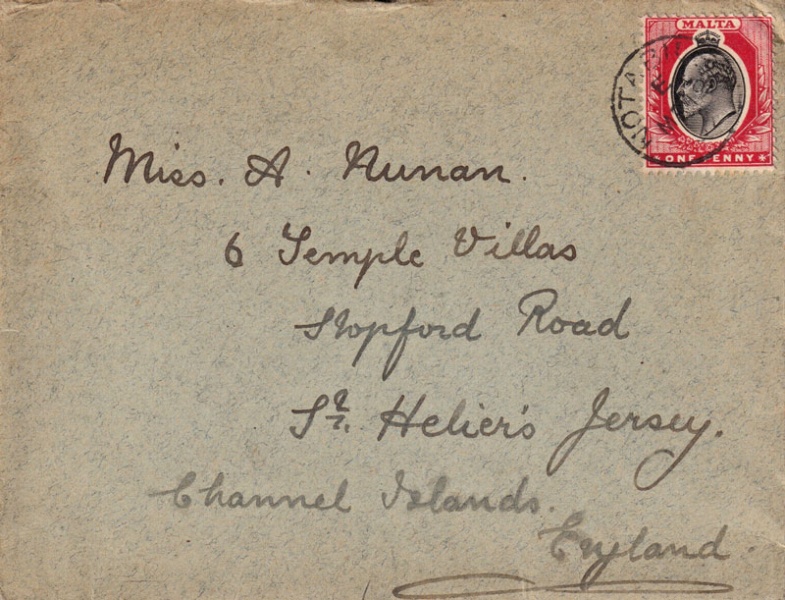 MALTA
NOTABILE
ONE PENNY
Miss. A. Nunan.
6 Temple Villas
Stopford Road
St. Helier's Jersey.
Channel Islands.
England.